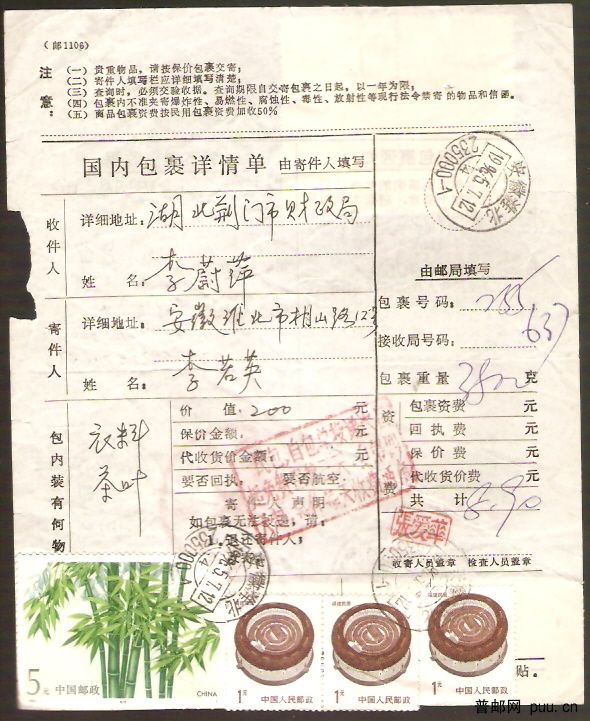 （邮1106）
注意：
（一）贵重物品，请按保价包裹交寄；
（二）寄件人填写栏应详细填写清楚；
（三）查询时，必须交验收据。查询期限自交寄包裹之日起，以一年为限；
（四）包裹内不准夹寄爆炸性、易燃性、腐蚀性、毒性、放射性等现行法令禁寄的物品和信函。
（五）商品包裹资费按民用包裹资费加收50%
国内包裹详情单 由寄件人填写
安徽淮北
1996.5.7.12
235000
收件人
详细地址：湖北荆门市财政局
姓名：李蔚萍
寄件人
详细地址：安徽淮北市相山路123
姓名：李若英
由邮局填写
包裹号码：
接收局号码：
637
包裹重量 克
包内装有何物
衣料
茶叶
价值：200 元
保价金额： 元
代收货价金额： 元
要否回执： 要否航空：
寄件人声明
如包裹无法投递，请：
1.退还寄件人；
资费
包裹资费 元
回执费 元
保价费 元
代收货价费 元
共计 8.90
張爱萍
收寄人员盖章 检查人员盖章
贴。
5元 中国邮政 CHINA
福建民居
1元 中国人民邮政
1元 中国人民邮政
1元 中国人民邮政
普邮网 puu.cn